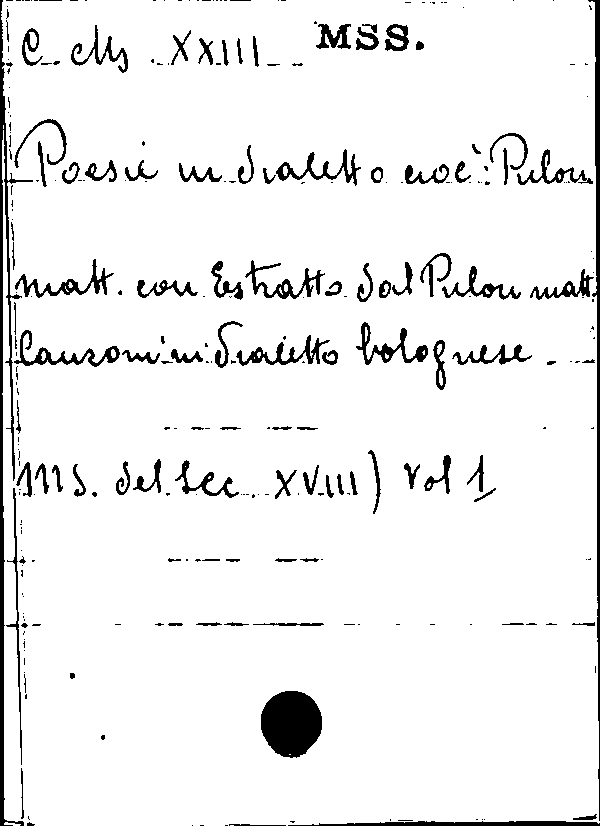 C. Ms. XXIII MSS.
Poesie in dialetto cioè: Pulon
matt. con Estratto dal Pulon matt.
Canzoni in dialetto bolognese.
ms. del Sec. XVIII) Vol 1